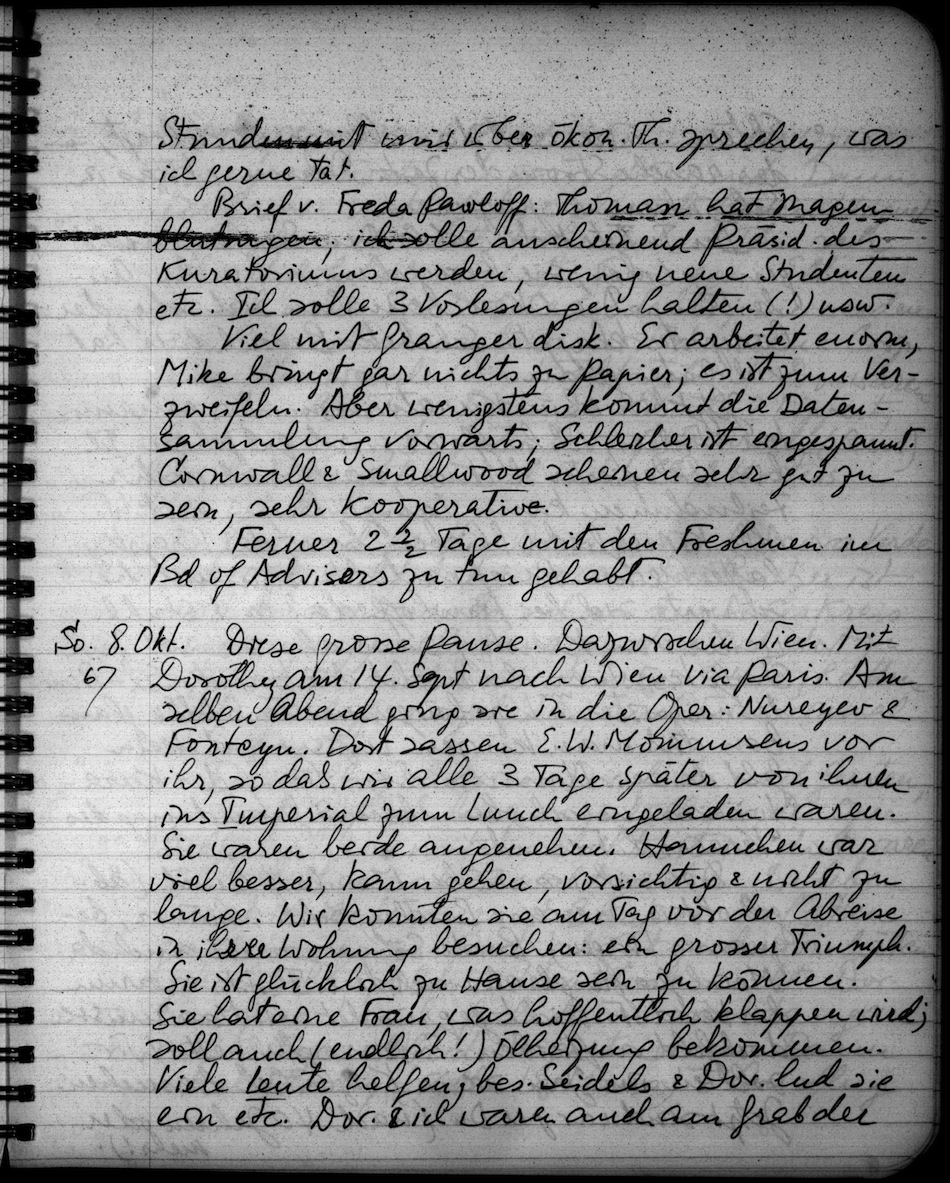 Stunden mit mir über ökon. Th. sprechen, was
ich gerne tat.
Brief v. Freda Pawloff: Thomas hat Magen
blutungen; ich solle anscheinend Präsid. des
Kuratoriums werden, wenig neue Studenten
etc. Ich solle 3 Vorlesungen halten (!) usw.
Viel mit Granger disk. Er arbeitet enorm,
Mike bringt gar nichts zu Papier; es ist zum Ver-
zweifeln. Aber wenigstens kommt die Daten-
sammlung vorwärts; Schleicher ist eingespannt.
Cornwall & Smallwood scheinen sehr gut zu
sein, sehr kooperative.
Ferner 2 1/2 Tage mit den Freshmen im
Bd of Advisers zu tun gehabt.
So. 8. Okt. Diese grosse Pause. Dazwischen Wien. Mit
67 Dorothy am 14. Sept nach Wien via Paris. Am
selben Abend ging sie in die Oper: Nureyev &
Fonteyn. Dort sassen E.W. Mommsens vor
ihr, so daß wir alle 3 Tage später von ihnen
ins Imperial zum Lunch eingeladen waren.
Sie waren beide angenehm. Hannchen war
viel besser, kann gehen, vorsichtig & nicht zu
lange. Wir konnten sie am Tag vor der Abreise
in ihrer Wohnung besuchen: ein grosser Triumph.
Sie ist glücklich zu Hause sein zu können.
Sie hat eine Frau, was hoffentlich klappen wird;
soll auch (endlich!) Ölheizung bekommen.
Viele Leute helfen, bes. Seidels & Dor. lud sie
ein etc. Dor. & ich waren auch am Grab der